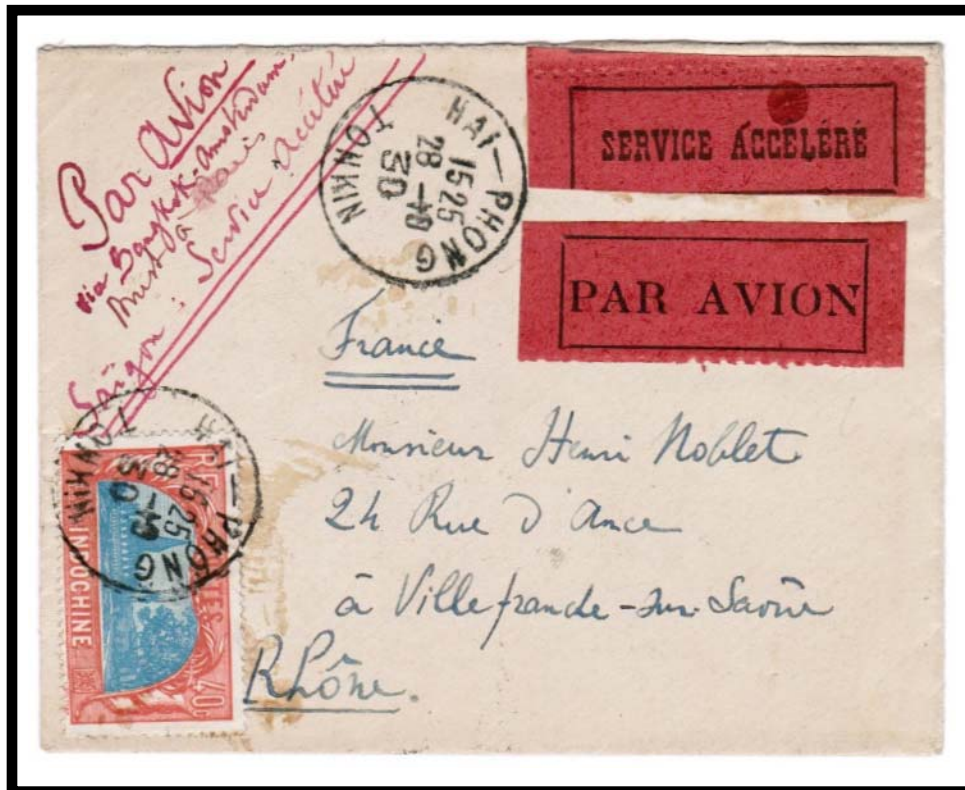 Par Avion
via Bangkok-Amsterdam
à Paris
Saïgon: Service accéléré
HAI-PHONG
1525
28 -10
30
TONKIN
SERVICE ACCÉLÉRÉ
PAR AVION
France
Monsieur Henri Noblet
24 Rue d'Ance
à Villefranche-sur-Saône
Rhône.
HAI-PHONG
1525
28 -10
30
TONKIN
POSTES
INDOCHINE
40